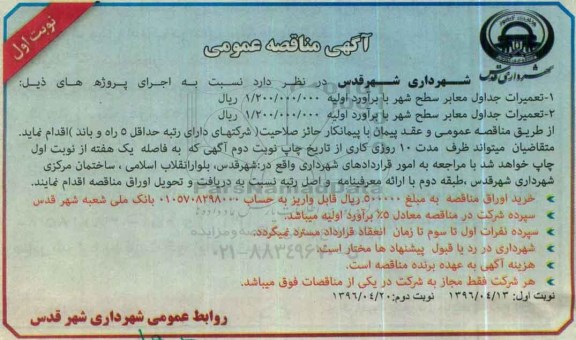 نوبت اول
آگهی مناقصه عمومی
شهرداری قدس
شهرداری شهرقدس در نظر دارد نسبت به اجرای پروژه های ذیل:
۱-تعمیرات جداول معابر سطح شهر با برآورد اولیه ۱/۲۰۰/۰۰۰/۰۰۰ ریال
۲-تعمیرات جداول معابر سطح شهر با برآورد اولیه ۱/۲۰۰/۰۰۰/۰۰۰ ریال
از طریق مناقصه عمومی و عقد پیمان با پیمانکار حائز صلاحیت( شرکتهای دارای رتبه حداقل ۵ راه و باند )اقدام نماید.
متقاضیان میتواند ظرف مدت ۱۰ روزی کاری از تاریخ چاپ نوبت دوم آگهی که به فاصله یک هفته از نوبت اول
چاپ خواهد شد با مراجعه به امور قراردادهای شهرداری واقع در:شهرقدس، بلوارانقلاب اسلامی ، ساختمان مرکزی
شهرداری شهرقدس ،طبقه دوم با ارائه معرفینامه و اصل رتبه نسبت به دریافت و تحویل اوراق مناقصه اقدام نمایند.
خرید اوراق مناقصه به مبلغ ۵۰۰۰۰۰ ریال قابل واریز به حساب ۰۱۰۵۷۰۸۲۹۸۰۰۰ بانک ملی شعبه شهر قدس
سپرده شرکت در مناقصه معادل ۵٪ برآورد اولیه میباشد.
سپرده نفرات اول تا سوم تا زمان انعقاد قرارداد مسترد نمیگردد.
شهرداری در رد یا قبول پیشنهاد ها مختار است.
هزینه آگهی به عهده برنده مناقصه است.
هر شرکت فقط مجاز به شرکت در یکی از مناقصات فوق میباشد.
نوبت اول: ۱۳۹۶/۰۴/۱۳ نوبت دوم:۱۳۹۶/۰۴/۲۰
روابط عمومی شهرداری شهر قدس